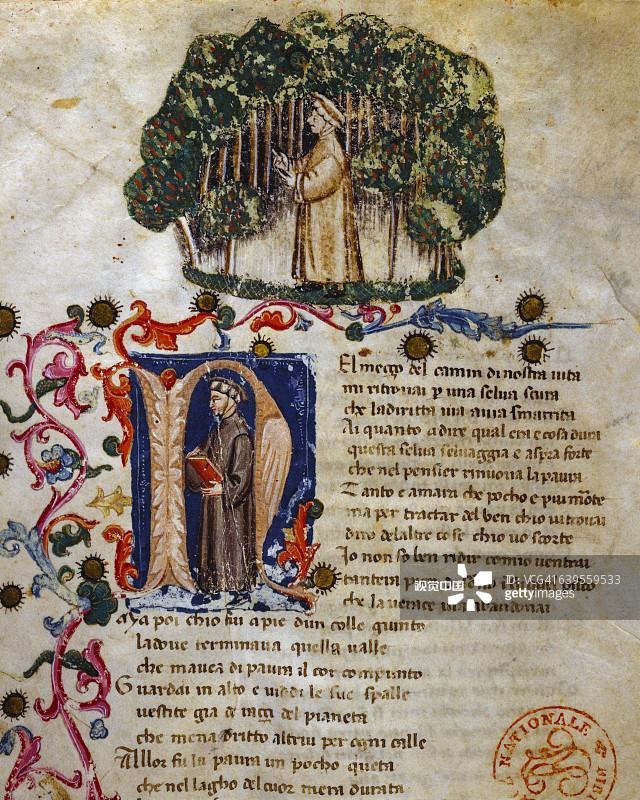 N
El mezço del camin di nostra uita
mi ritrouai p una selua scura
che la diritta uia auia smarrita
Ai quanto a dire qual era e cosa dura
questa selua seluaggia e aspra forte
che nel pensier rinuoua la paura
Tanto e amara che pocho e piu morte
ma per tractar del ben chio ui trouai
diro de laltre cose chio uo scorte
Io non so ben ridir comio uentrai
tantera
che la uerace uia abandonai
Ma poi chio fui apie dun colle giunto
ladoue terminaua quella ualle
che mauea di paura il cor compunto
Guardai in alto e uiddi le sue spalle
uestite gia de raggi del pianeta
che mena dritto altrui per ogni calle
Allor fu la paura un pocho queta
che nel lagho del cuor mera durata
NATIONALE
视觉中国
ID: VCG41639559533
gettyimages